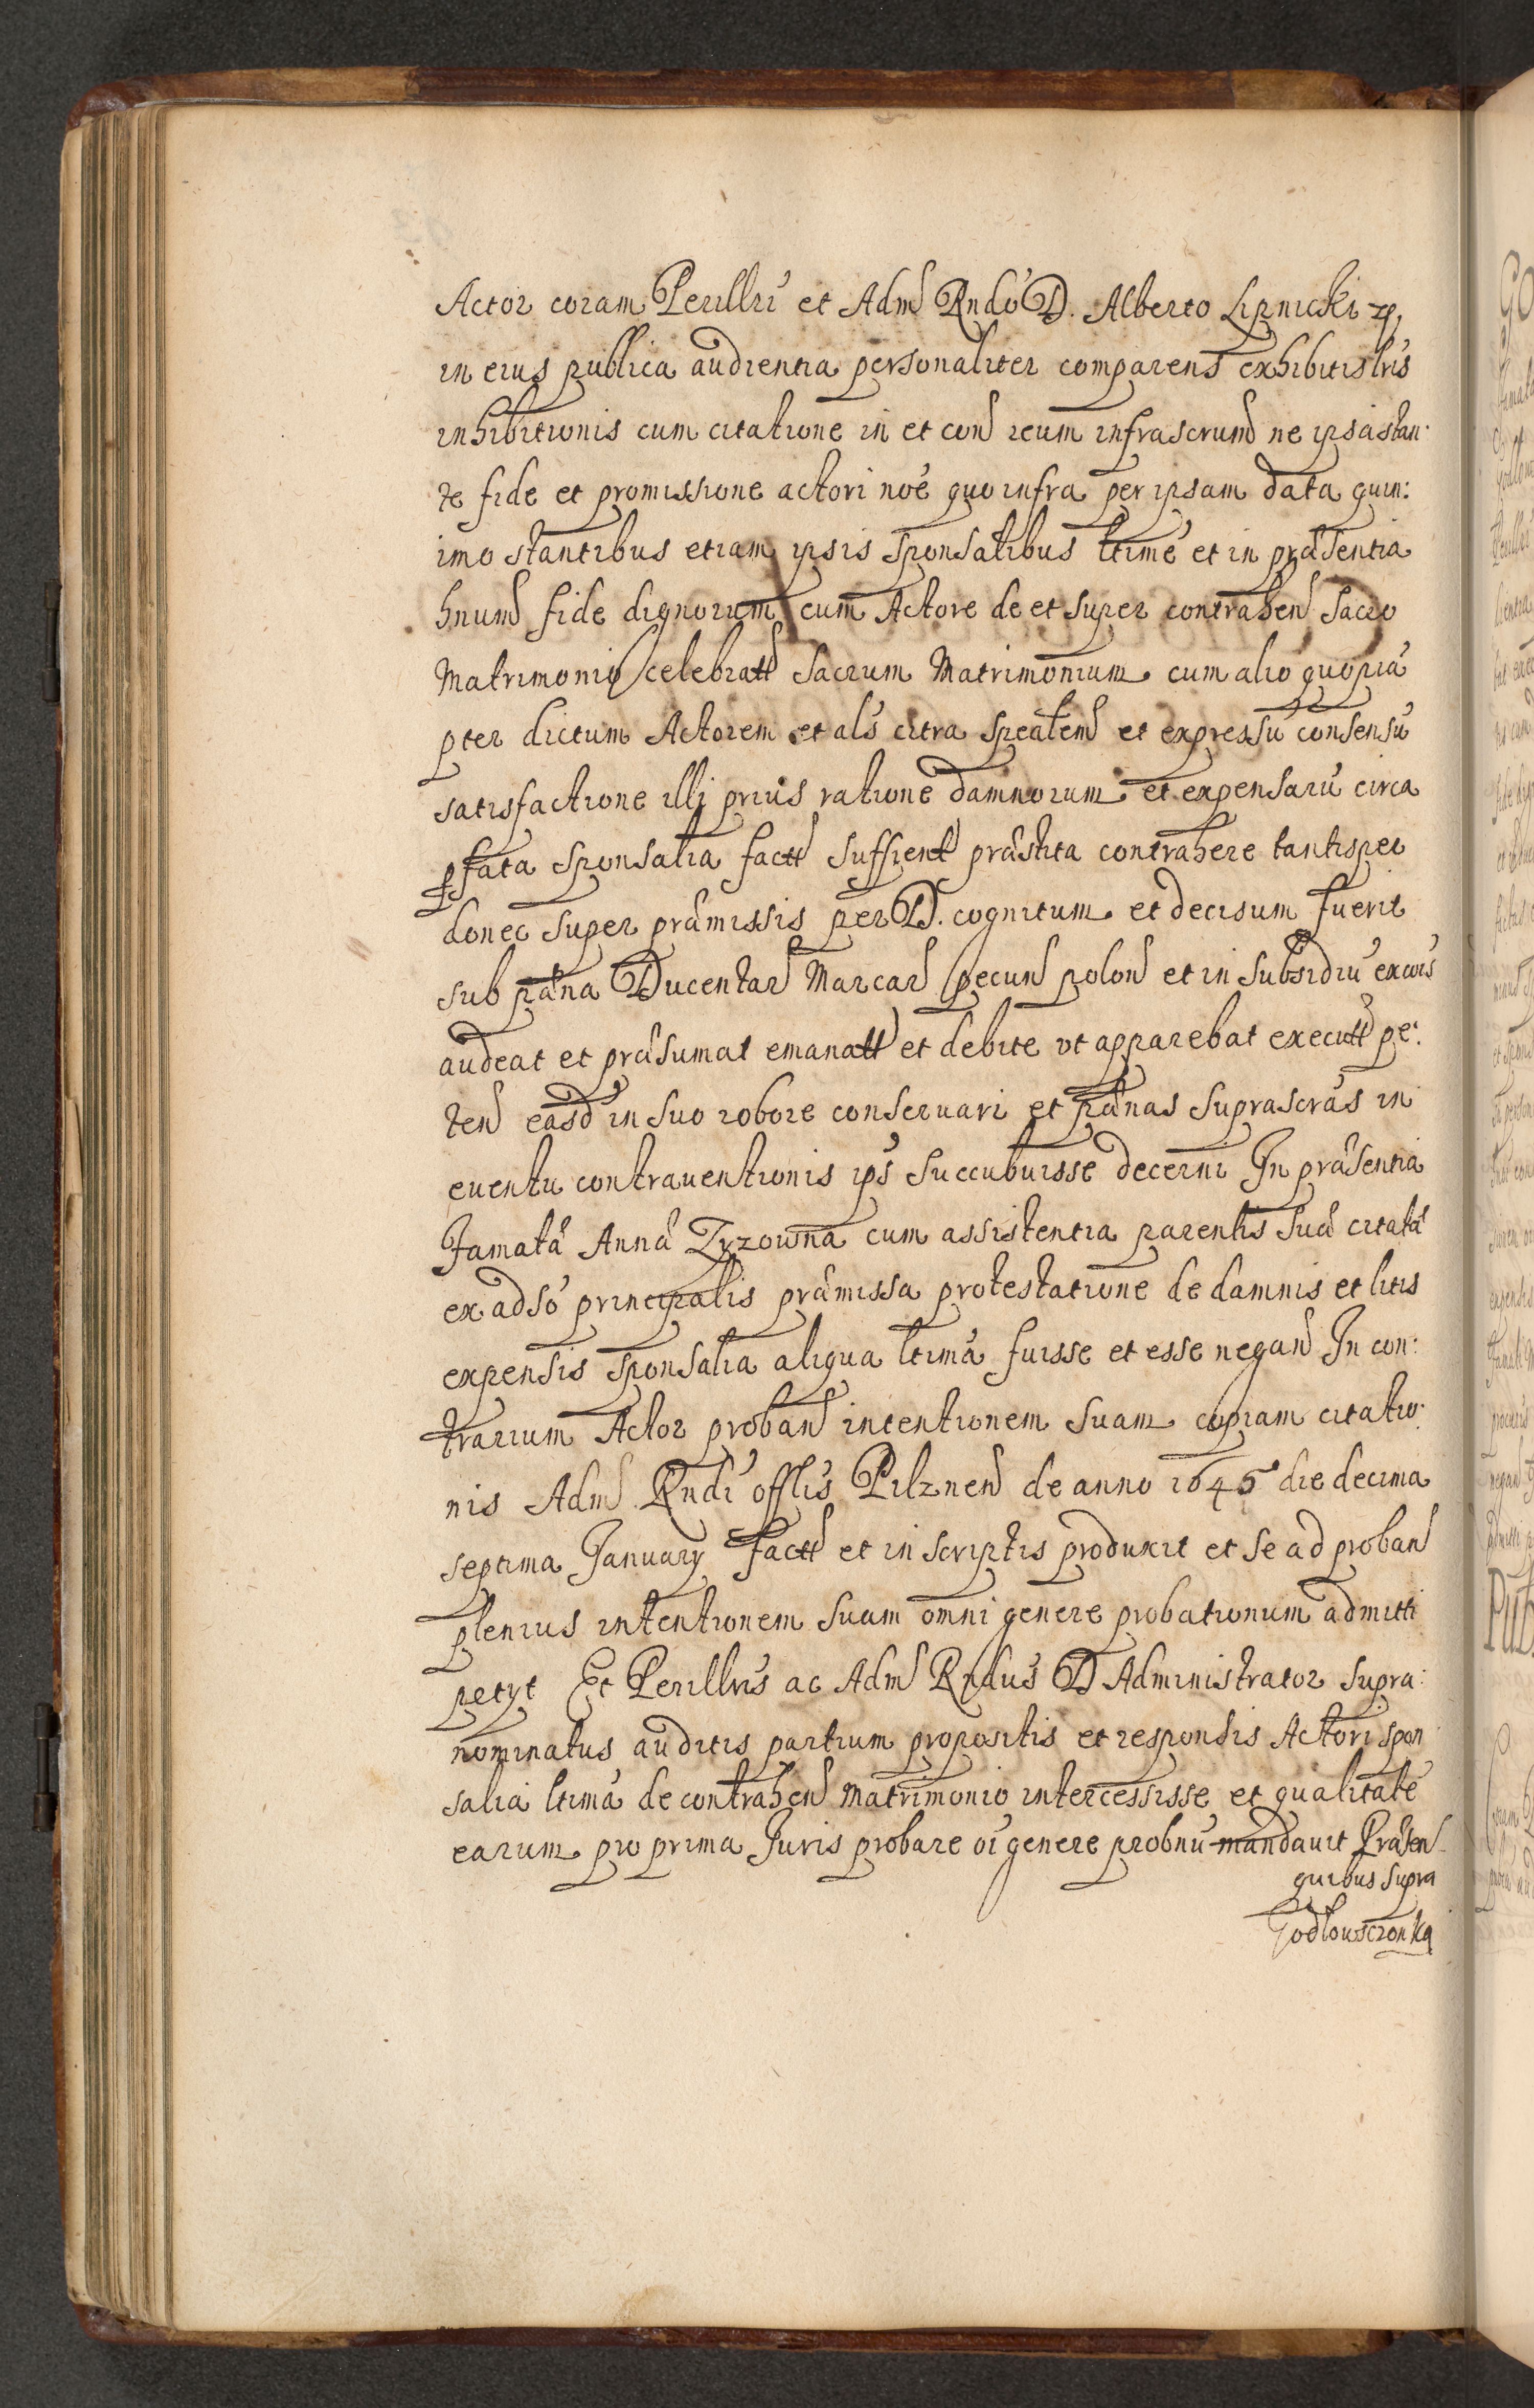 Actor coram Perillri et Adm Rndo D. Alberto Lipnicki
in eius publica audientia personaliter comparens exhibitis lris
inhibitionis cum citatione in et con reum infrascrum ne ipsa stan:
te fide et promissione actori noe quo infra per ipsam data quin:
imo stantibus etiam ipsis sponsalibus ltime et in præsentia
hnum fide dignorum cum Actore de et super contrahen Sacro
Matrimonio celebratt Sacrum Matrimonium cum alio quopiã
pter dictum Actorem et als citra spealem et expressũ consensũ
satisfactione illi prius ratione damnorum et expensarũ circa
pfata Sponsalia factt suffient præstita contrahere tantisper
donec super præmissis per D. cognitum et decisum fuerit
sub pæna Ducentar Marcar pecun polon et in subsidiũ excois
audeat et præsumat emanatt et debite vt apparebat executt pe:
ten easd in suo robore conseruari et pænas suprascras in
euentu contrauentionis ips succubuisse decerni In præsentia
Famatæ Annæ Zyzowna cum assistentia parentis suæ citatæ
ex adso principalis præmissa protestatione de damnis et litis
expensis sponsalia aliqua ltima fuisse et esse negan In con:
trarium Actor proban intentionem suam copiam citatio:
nis Adm Rndi offlis Pilznen de anno 1645 die decima
septima January factt et in scriptis produxit et se ad proban
plenius intentionem suam omni genere probationum admitti
petyt Et Perillris ac Adm Rndus D Administrator supra:
nominatus auditis partium propositis et responsis Actori spon
salia ltima de contrahen matrimonio intercessisse et qualitatẽ
earum pro prima Juris probare oi genere probnũ mandauit Præsen
quibus supra